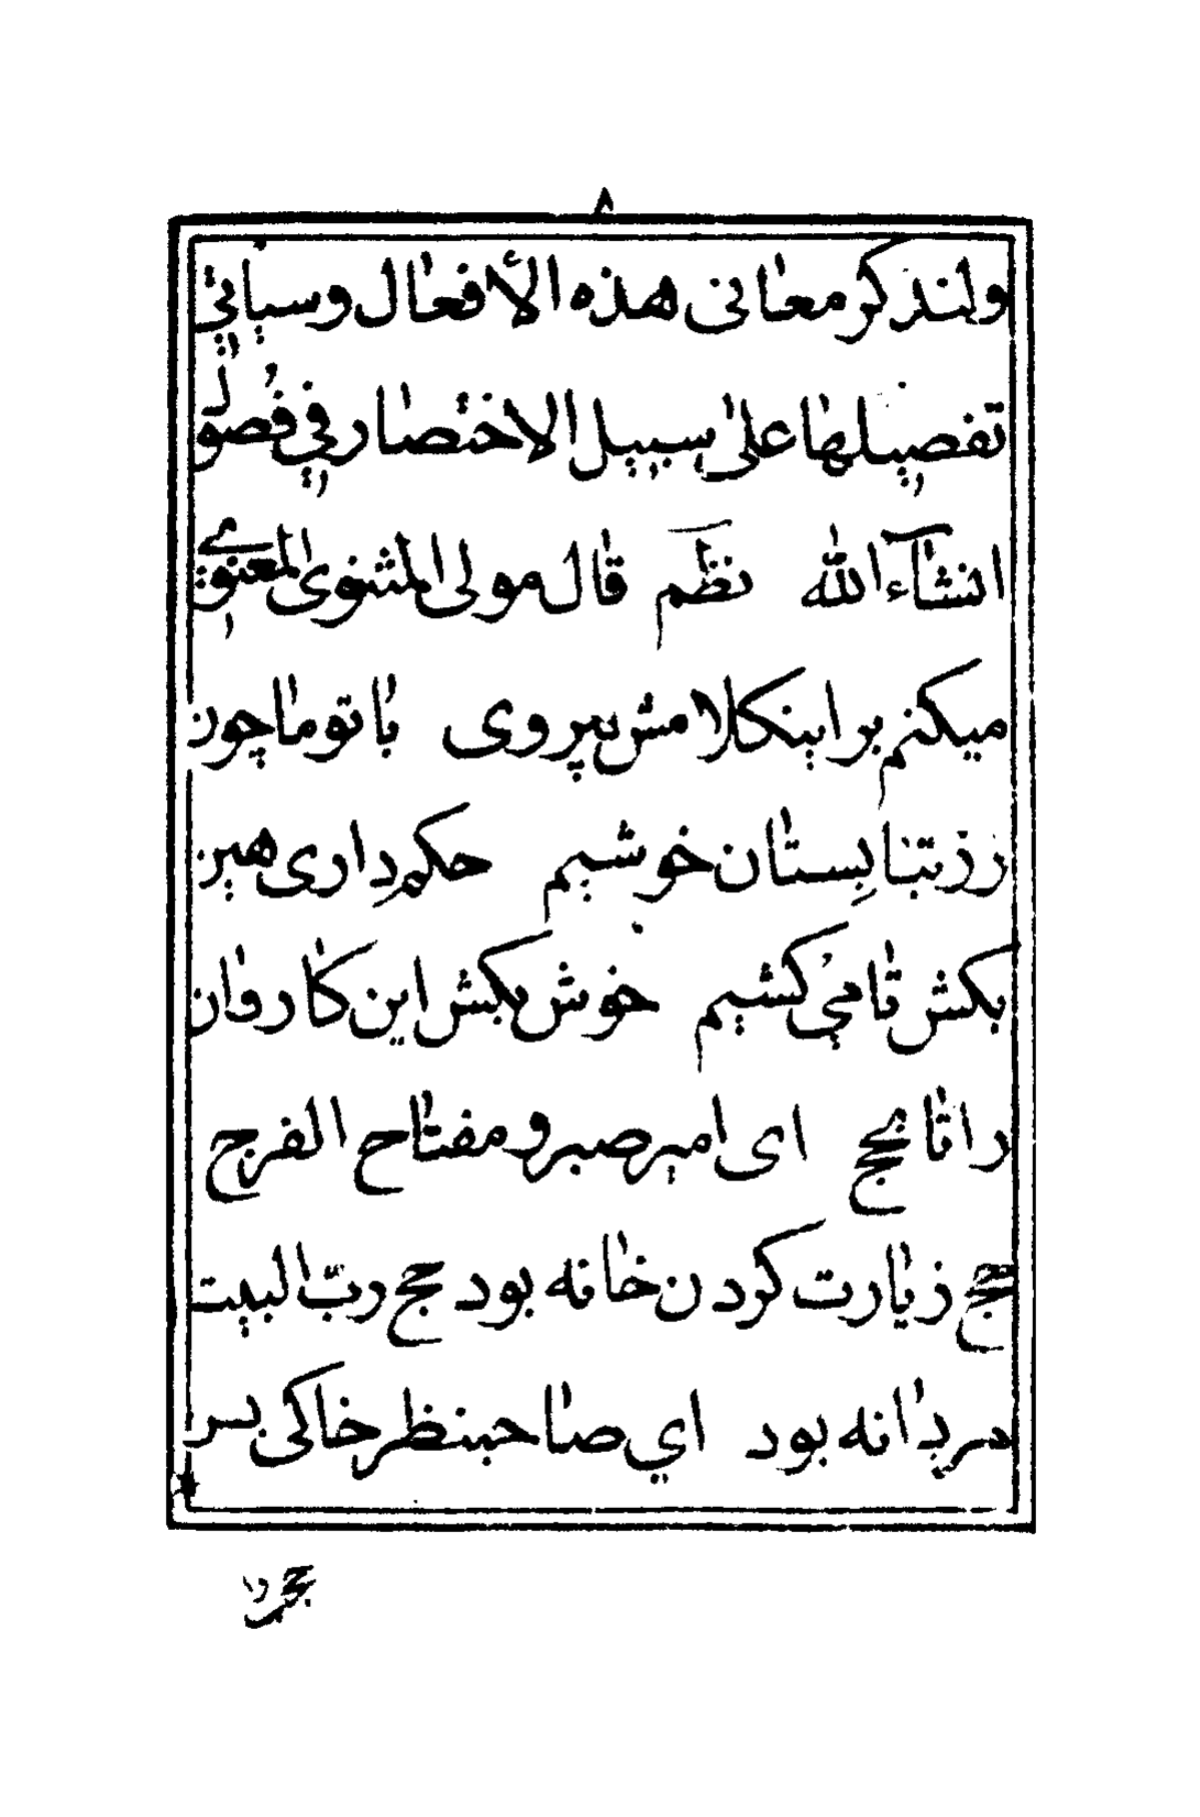 ٨
ولنذكر معانى هذه الأفعال وسيأتي
تفصيلها على سبيل الاختصار في فصول
انشاء الله نظم قال مولى المثنوى المعنوي
ميكنم بر اينكلامش پيروى با تو ما چون
رز بتابستان خوشيم حكم دارى هين
بكش تا مي كشيم خوش بكش اين كاروان
را تا بحج اى امير صبر و مفتاح الفرج
حج زيارت كردن خانه بود حج ربّ البيت
مردانه بود اي صاحبنظر خاكى بسر